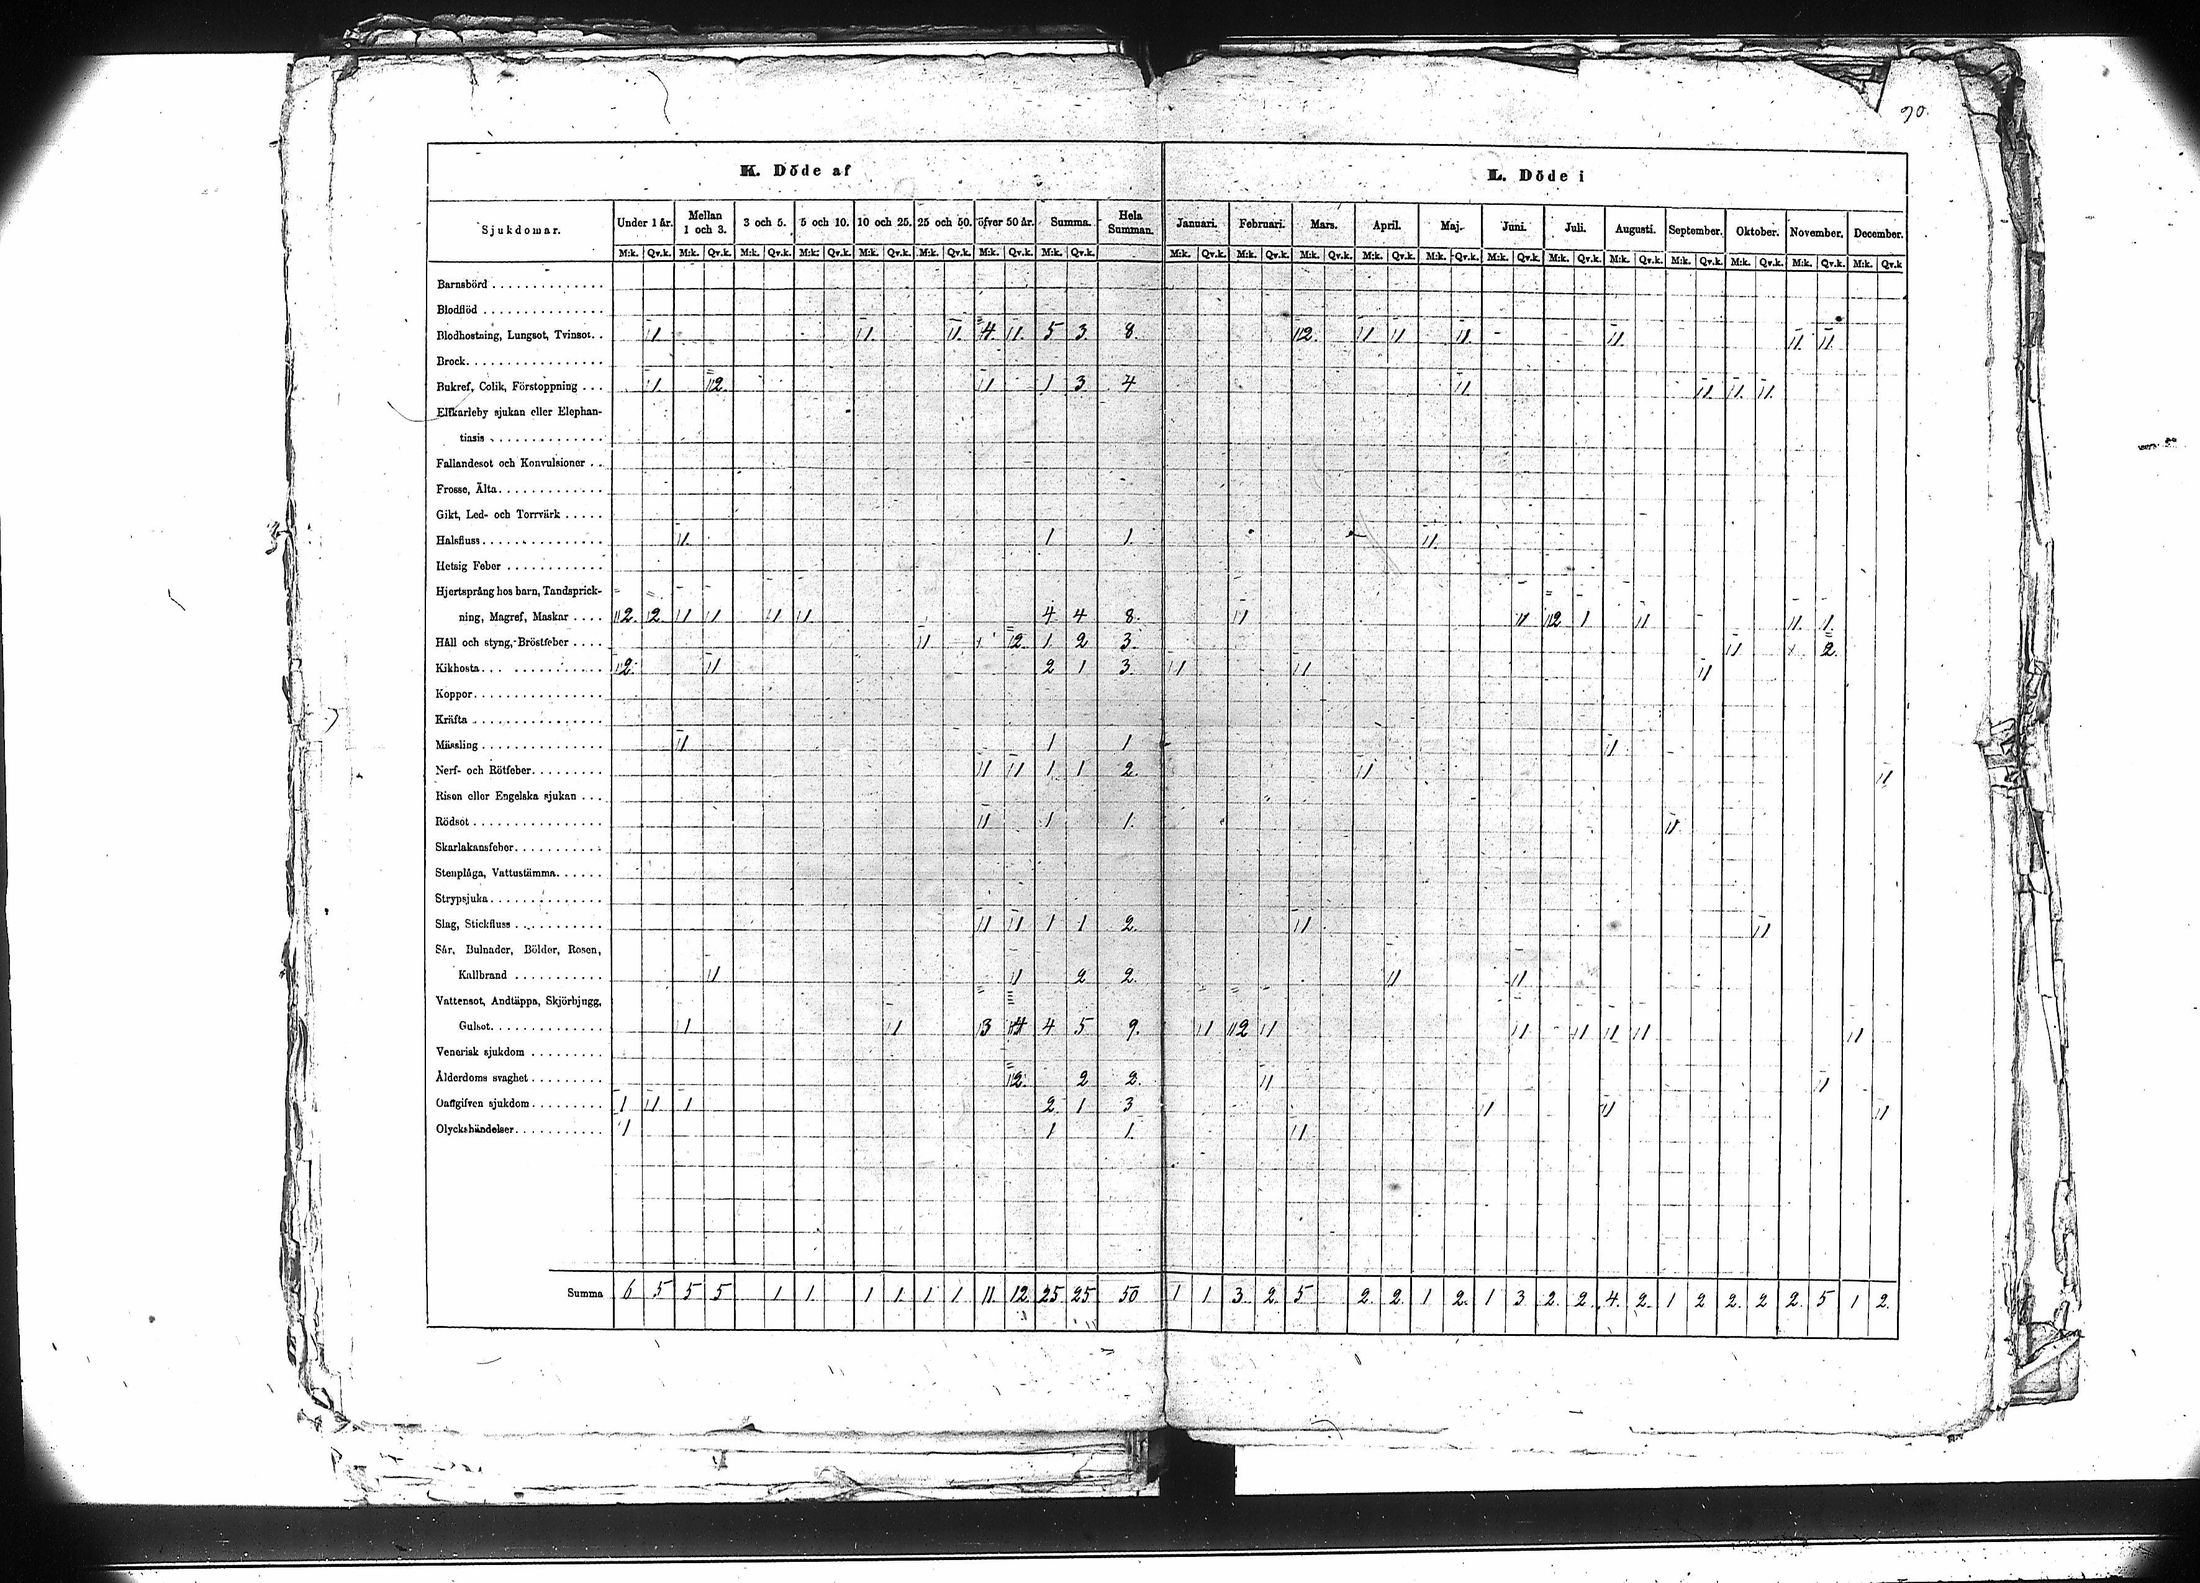 90.
K. Döde af
L. Döde i
Sjukdomar. Under 1 år. Mellan 1 och 3. 3 och 5. 5 och 10. 10 och 25. 25 och 50. öfver 50 år. Summa. Hela Summan. Januari. Februari. Mars. April. Maj. Juni. Juli. Augusti. September. Oktober. November. December.
M:k. Qv.k. M:k. Qv.k. M:k. Qv.k. M:k. Qv.k. M:k. Qv.k. M:k. Qv.k. M:k. Qv.k. M:k. Qv.k. M:k. Qv.k. M:k. Qv.k. M:k. Qv.k. M:k. Qv.k. M:k. Qv.k. M:k. Qv.k. M:k. Qv.k. M:k. Qv.k. M:k. Qv.k. M:k. Qv.k. M:k. Qv.k. M:k. Qv.k
Barnsbörd
Blodflöd
Blodhostning, Lungsot, Tvinsot. 1 1 1 4 1 5 3 8. 2 1 1 1 1 1 1
Brock
Bukref, Colik, Förstoppning 1 2 1 1 3 4 1 1 1 1
Elfkarleby sjukan eller Elephan-
tiasis
Fallandesot och Konvulsioner
Frosse, Älta
Gikt, Led- och Torrvärk
Halsfluss 1 1 1 1
Hetsig Feber
Hjertsprång hos barn, Tandsprick-
ning, Magref, Maskar 2 2 1 1 1 1 4 4 8. 1 1 2 1 1 1 1
Håll och styng, Bröstfeber 1 2 1 2 3 1 2
Kikhosta 2 1 2 1 3 1 1 1
Koppor
Kräfta
Mässling 1 1 1 1
Nerf- och Rötfeber 1 1 1 1 2. 1 1
Risen eller Engelska sjukan
Rödsot 1 1 1. 1
Skarlakansfeber
Stenplåga, Vattustämma
Strypsjuka
Slag, Stickfluss 1 1 1 1 2. 1 1
Sår, Bulnader, Bölder, Rosen,
Kallbrand 1 1 2 2. 1 1
Vattensot, Andtäppa, Skjörbjugg,
Gulsot 1 1 3 4 4 5 9. 1 2 1 1 1 1 1 1
Venerisk sjukdom
Ålderdoms svaghet 2 2 2. 1 1
Oangifven sjukdom 1 1 1 2 1 3 1 1 1
Olyckshändelser 1 1 1. 1
Summa 6 5 5 5 1 1. 1 1. 1 1. 11. 12 25 25 50 1 1 3 2. 5 2. 2. 1 2. 1 3 2. 2. 4. 2. 1 2 2. 2 2. 5 1 2.